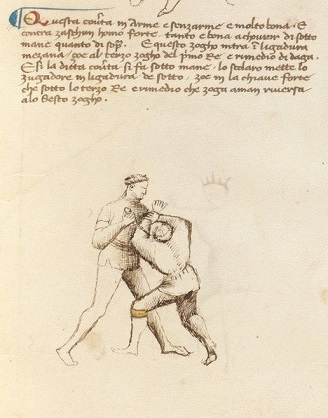 Questa contra in Arme e senzarme e molto bona. E
contra zaschun homo forte tanto e bona a chovrir di sotto
mane quanto di sopra. E questo zogho intra in ligadura
mezana, zoe al terzo zogho del primo Re e rimedio di daga.
E si la ditta coverta si fa sotto mane. lo scolaro mette lo
zugadore in ligadura de sotto, zoe in la chiave forte
che sotto lo terzo Re e rimedio che zoga a man riversa
a lo sesto zogho.